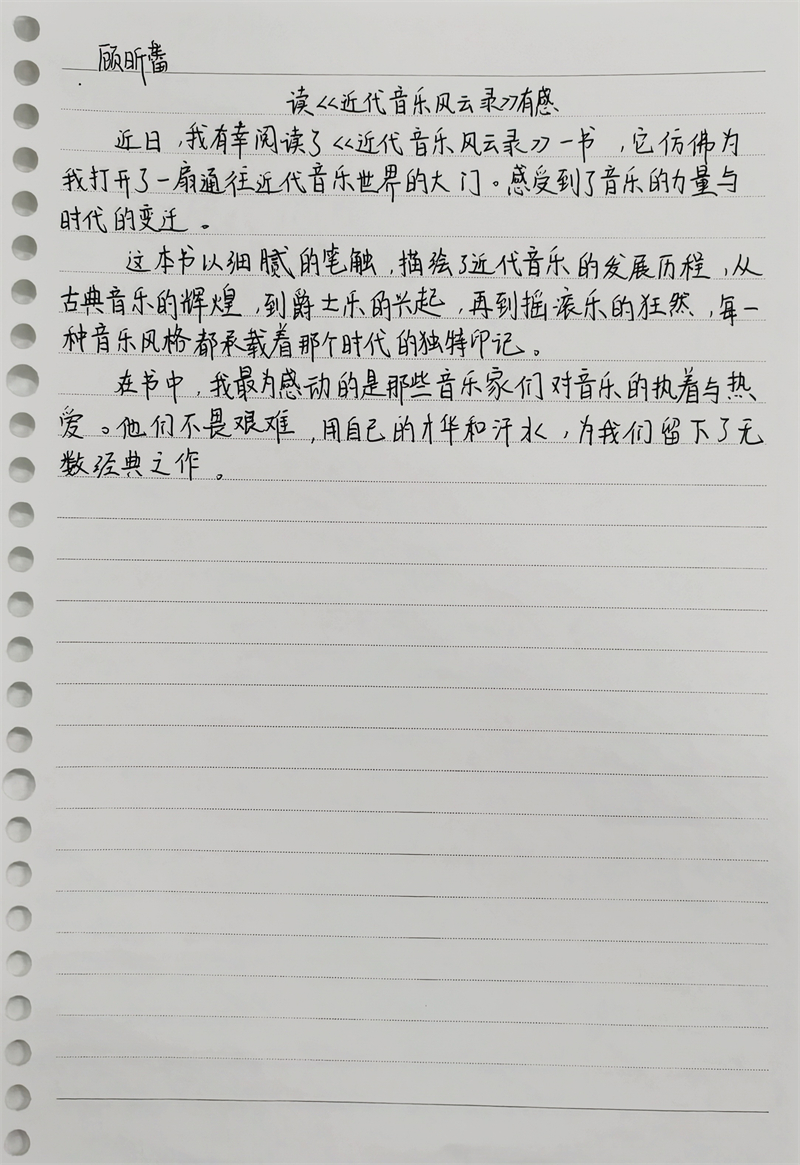 顾昕
读《近代音乐风云录》有感
近日，我有幸阅读了《近代音乐风云录》一书，它仿佛为
我打开了一扇通往近代音乐世界的大门。感受到了音乐的力量与
时代的变迁。
这本书以细腻的笔触，描绘了近代音乐的发展历程，从
古典音乐的辉煌，到爵士乐的兴起，再到摇滚乐的狂然，每一
种音乐风格都承载着那个时代的独特印记。
在书中，我最为感动的是那些音乐家们对音乐的执着与热
爱。他们不畏艰难，用自己的才华和汗水，为我们留下了无
数经典之作。